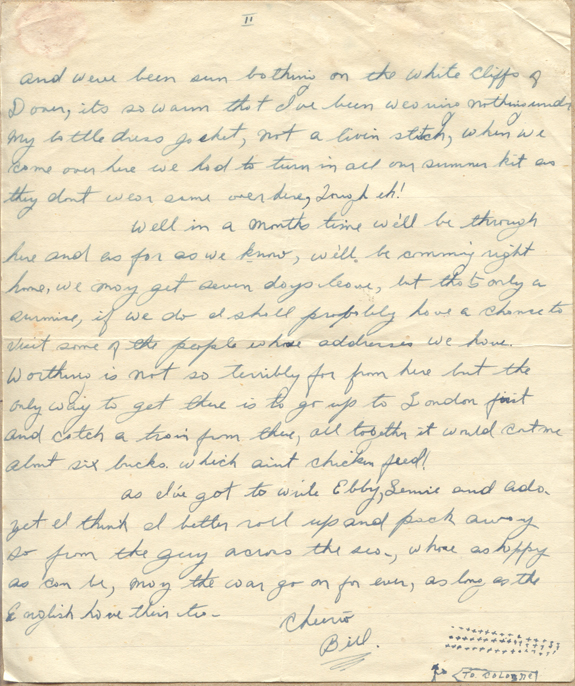 II
and weve been sun bathing on the white cliffs of
Dover, its so warm that I've been wearing nothing under
my battledress jacket, not a livin stitch, when we
come over here we had to turn in all our summer kit as
they dont wear same over here, Tough eh!
Well in a months time we'll be through
here and as far as we know, we'll be comming right
home, we may get seven days leave, but thats only a
surmise, if we do I shall probably have a chance to
visit some of the people whose addresses we have.
Worthing is not so terribly far from here but the
only way to get there is to go up to London first
and catch a train from there, all together it would cost me
about six bucks. which aint chicken feed!
as I've got to write Ebby, and Ada.
yet I think I better roll up and pack away
so from the guy across the sea, whose as happy
as can be, may the war go on for ever, as long as the
English have their tea.
Cheerio
Bill.
TO COLOGNE